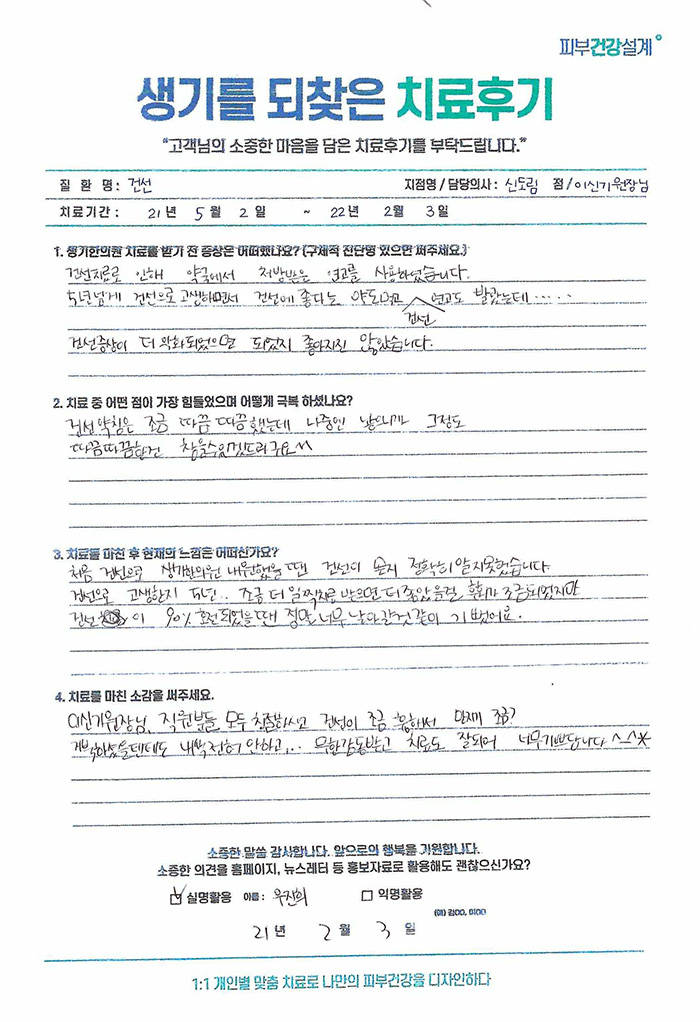 피부건강설계
생기를 되찾은 치료후기
"고객님의 소중한 마음을 담은 치료후기를 부탁드립니다."
질 환 명 : 건선 지점명 / 담당의사 : 신도림 점 / 이신기원장님
치료기간 : 21 년 5 월 2 일 ~ 22 년 2 월 3 일
1. 생기한의원 치료를 받기 전 증상은 어떠했나요? (구체적 진단명 있으면 써주세요.)
건선치료로 인해 약국에서 처방받은 연고를 사용하였습니다.
5년넘게 건선으로 고생하면서 건선에 좋다는 약도먹고 연고도 발랐는데.....
건선
건선증상이 더 악화되었으면 되었지 좋아지진 않았습니다.
2. 치료 중 어떤 점이 가장 힘들었으며 어떻게 극복 하셨나요?
건선약침은 조금 따끔 따끔했는데 나중엔 나으니까 그정도
따끔따끔한건 참을수있겠드라구요~
3. 치료를 마친 후 현재의 느낌은 어떠신가요?
처음 건선으로 생기한의원 내원했을 땐 건선이 솔직 정확히 알지못했습니다.
건선으로 고생한지 5년.. 조금 더 일찍치료 받으면 더 좋았을걸 후회가 조금되었지만
건선 이 90% 호전되었을때 정말 너무 날아갈것 같이 기뻤어요.
4. 치료를 마친 소감을 써주세요.
이신기원장님, 직원분들 모두 친절하시고 건선이 조금 흉해서 만지기 조금?
거북하셨을텐데도 내색 전혀 안하고... 무한감동받고 치료도 잘되어 너무기쁘답니다 ^_^*
소중한 말씀 감사합니다. 앞으로의 행복을 기원합니다.
소중한 의견을 홈페이지, 뉴스레터 등 홍보자료로 활용해도 괜찮으신가요?
실명활용 이름 : 우진희 익명활용
(예) 김OO, 이OO
21 년 2 월 3 일
1:1 개인별 맞춤 치료로 나만의 피부건강을 디자인하다